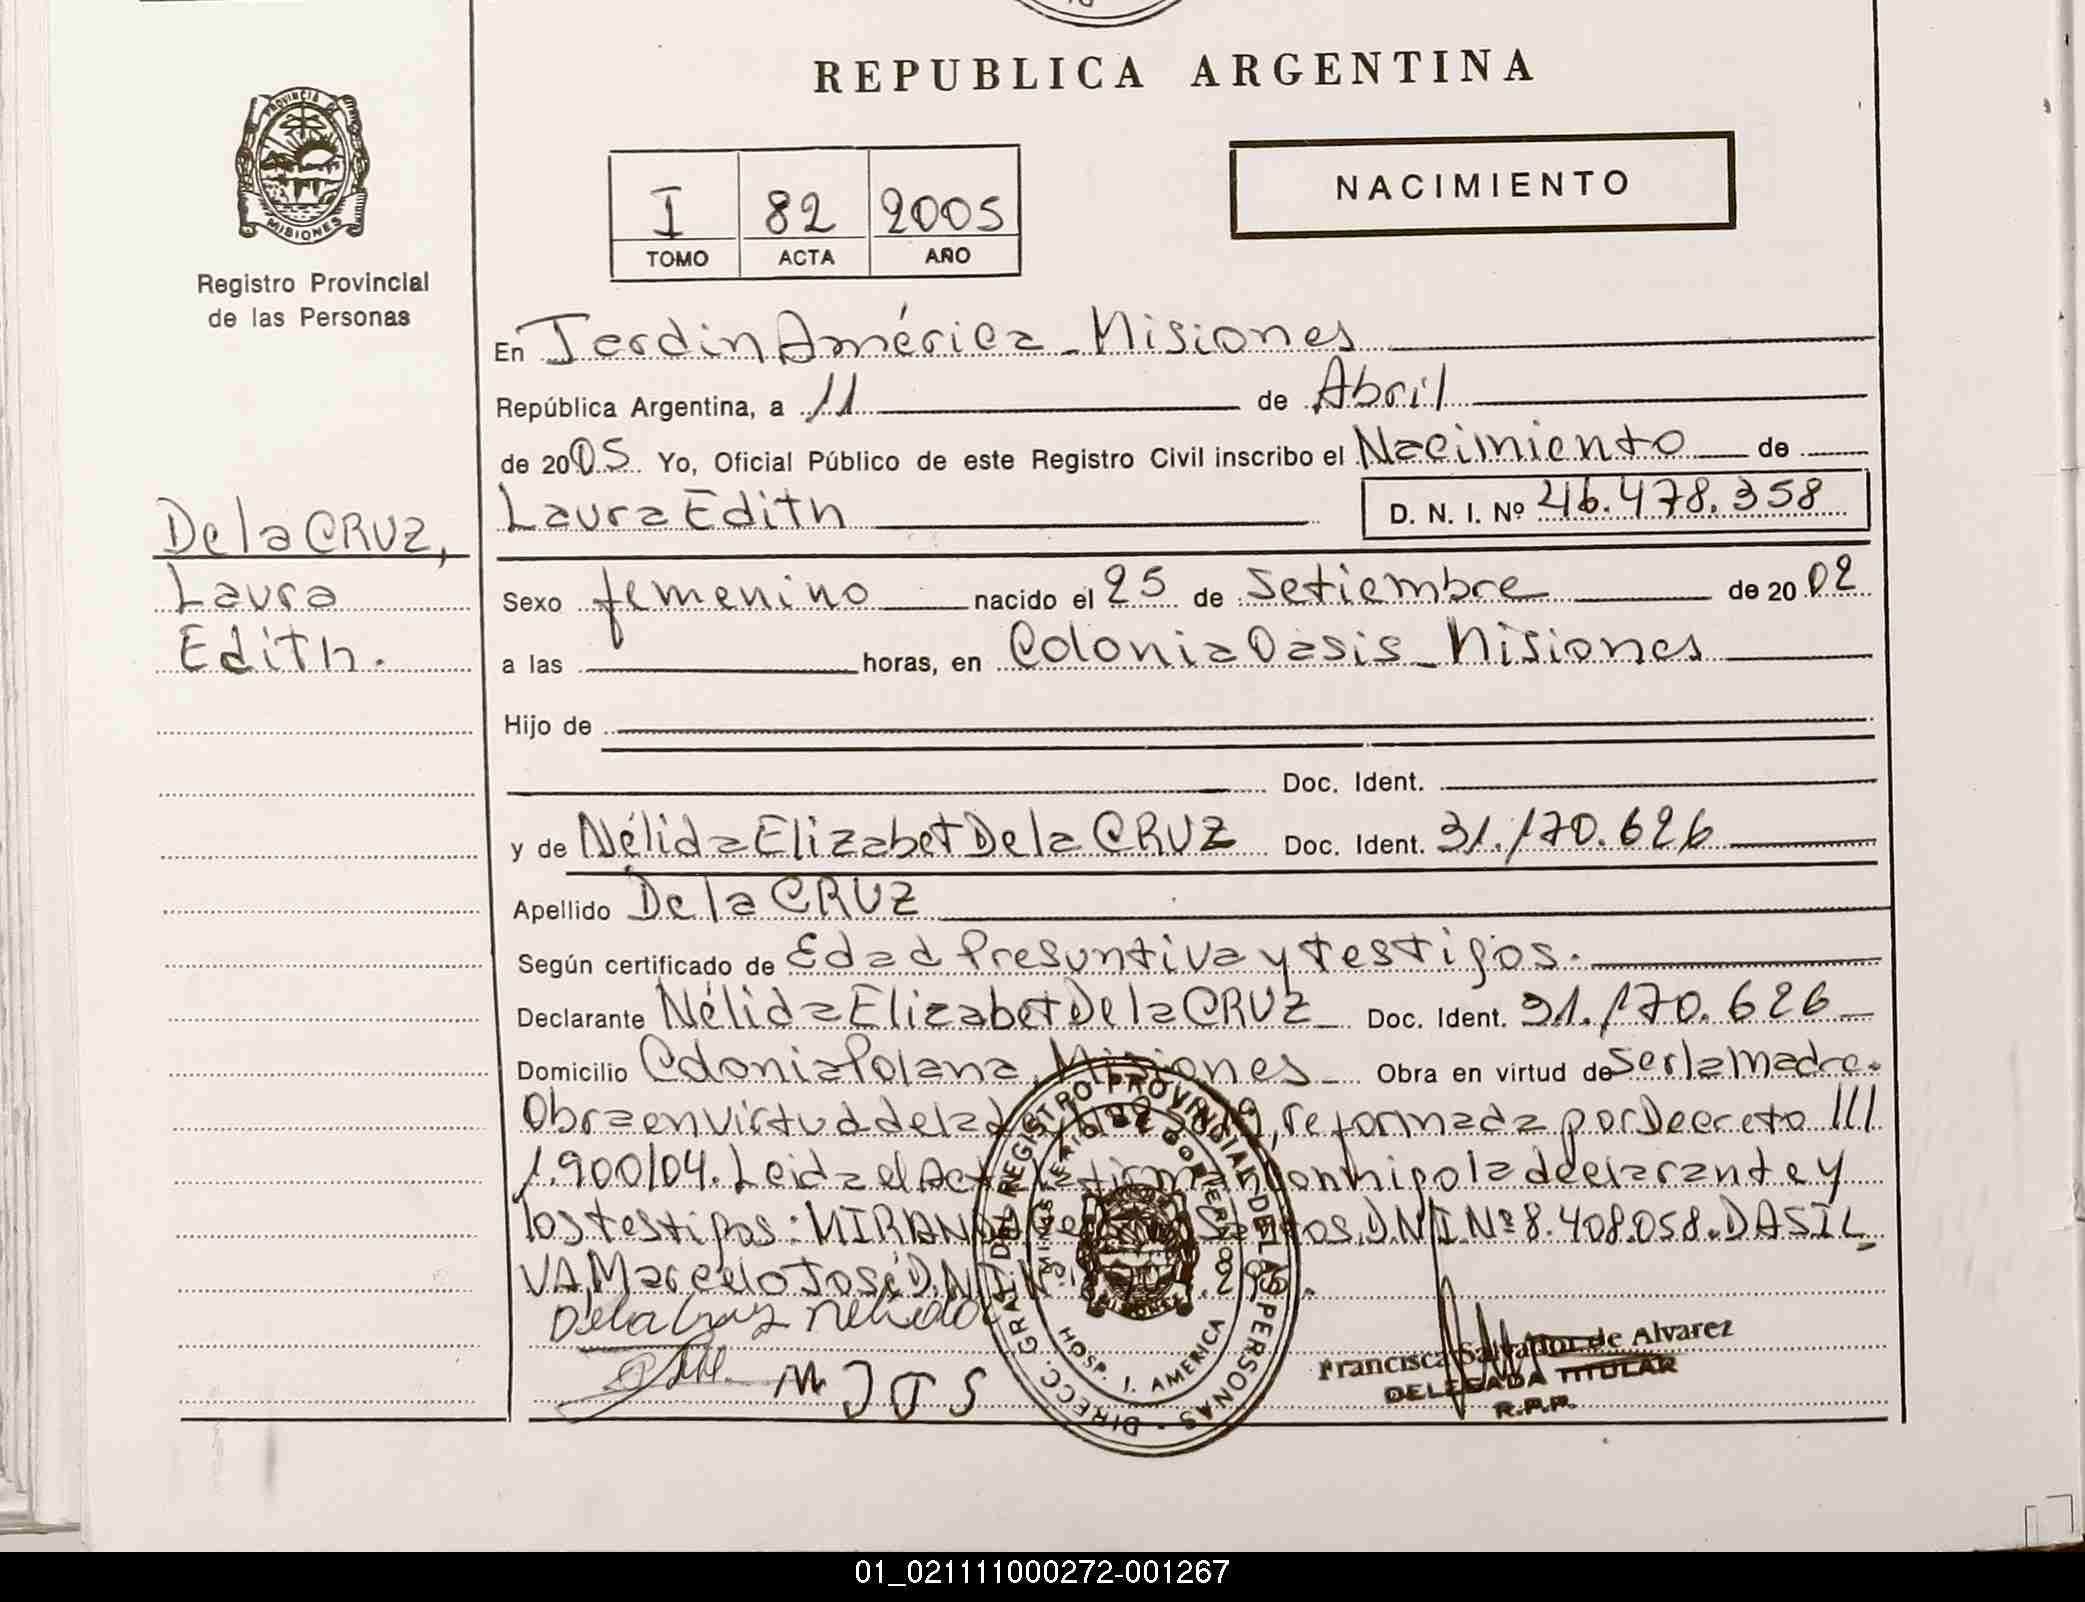 REPUBLICA ARGENTINA
PROVINCIA DE
MISIONES
Registro Provincial
de las Personas
I 82 2005
TOMO ACTA AÑO
NACIMIENTO
En Jardin América - Misiones
República Argentina, a 11 de Abril
de 2005 Yo, Oficial Público de este Registro Civil inscribo el Nacimiento de
Laura Edith D. N. I. Nº 46.478.358
De la CRUZ,
Laura
Edith.
Sexo femenino nacido el 25 de Setiembre de 2002
a las horas, en Colonia Oasis - Misiones
Hijo de
Doc. Ident.
y de Nélida Elizabet De la CRUZ Doc. Ident. 31.170.626
Apellido De la CRUZ
Según certificado de Edad Presuntiva y testigos.
Declarante Nélida Elizabet De la CRUZ Doc. Ident. 31.170.626
Domicilio Colonia Polana, Misiones Obra en virtud de ser la madre.
Obra en virtud de la reformada por Decreto
1.900/04. Leida el Acta firman conmigo la declarante y
los testigos: MIRANDA Santos D.N.I. Nº 8.408.058. DASIL
VA, Marcelo José D.N.I. Nº
De la Cruz Nelida
M J D S
DIRECC. GRAL DEL REGISTRO PROVINCIAL DE LAS PERSONAS
HOSP. J. AMERICA
Francisca Salvador de Alvarez
DELEGADA TITULAR
R.P.P.
01_021111000272-001267